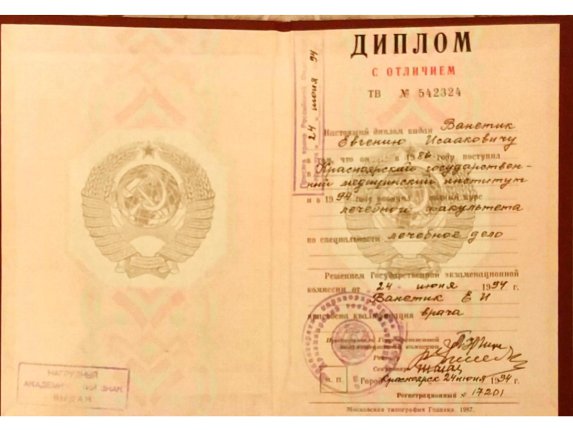 ДИПЛОМ
С ОТЛИЧИЕМ
ТВ № 542324
Настоящий диплом выдан Ванетик
Евгению Исааковичу
в том, что он в 1986 году поступил
в Красноярский государствен-
ный медицинский институт
и в 1994 году полный курс
лечебного факультета
по специальности лечебное дело
Решением Государственной экзаменационной
комиссии от 24 июня 1994 г.
Ванетик Е И
присвоена квалификация врача
Председатель Государственной
экзаменационной комиссии
Ректор
Секретарь
М. П. Город Красноярск 24 июня 1994 г.
Регистрационный № 17201
Московская типография Гознака. 1987.
24 июня 94
НАГРУДНЫЙ
АКАДЕМИЧЕСКИЙ ЗНАК
ВЫДАН